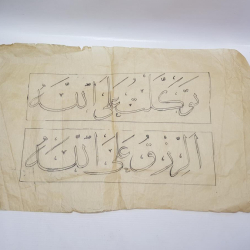 توكلت على الله
الرزق على الله